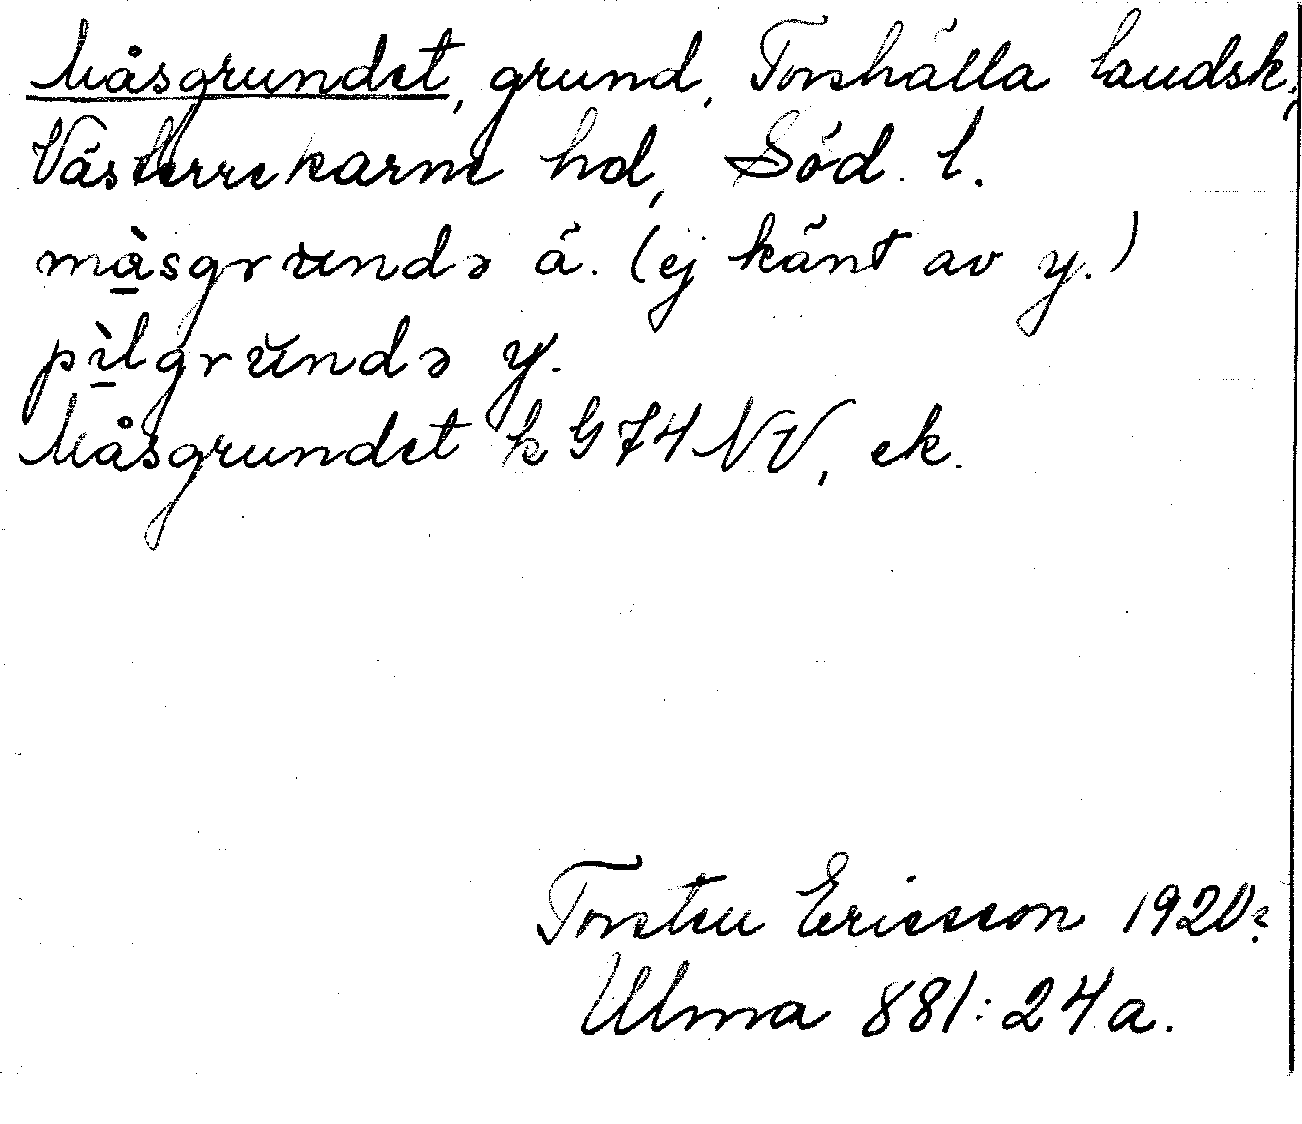 Måsgrundet, grund, Torshälla landsk;
Västerrekarne hd, Söd. l.
mà̱sgrŭndə ä. (ej känt av y.)
pì̱lgrŭndə y.
Måsgrundet k G74NV, ek.
Torsten Ericsson 1920?
Ulma 881:24a.